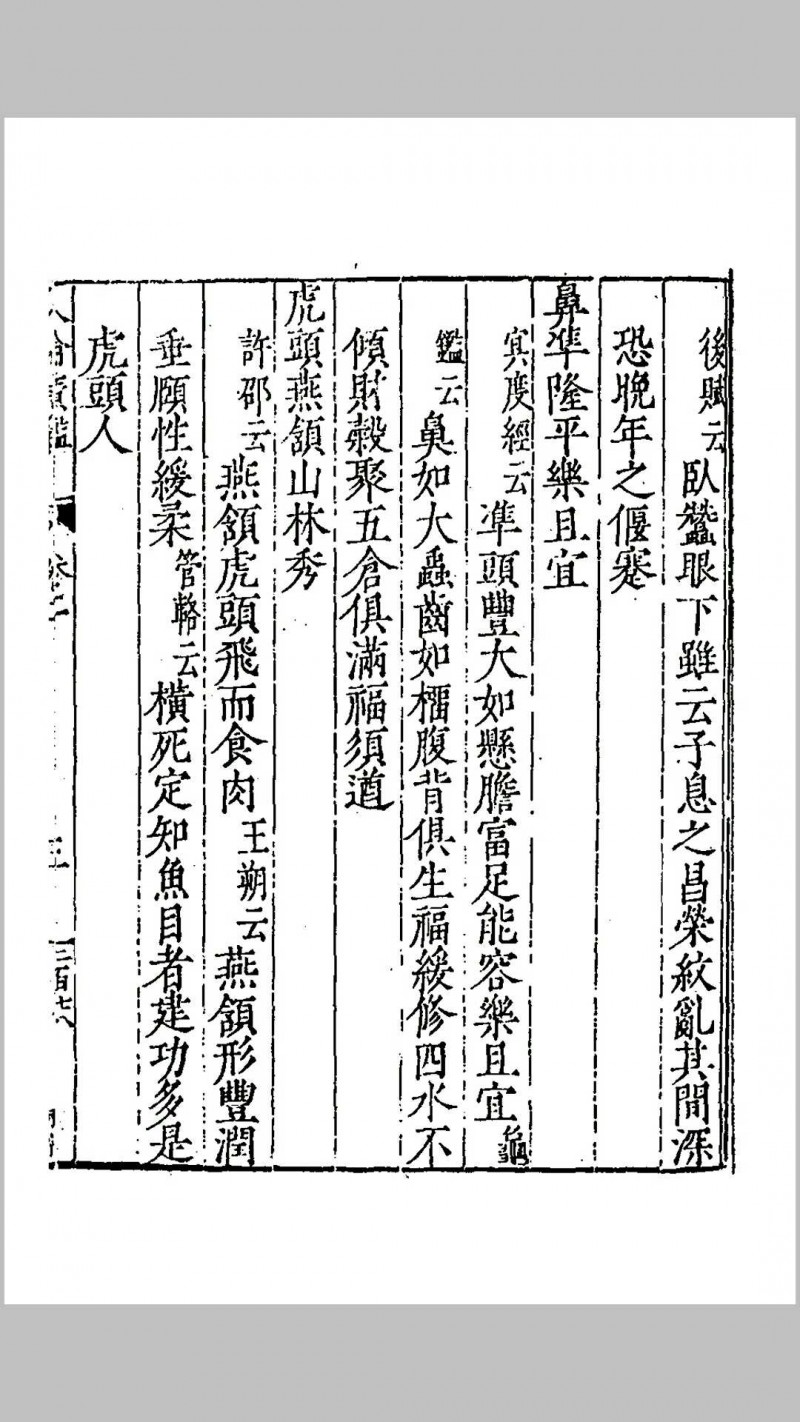 後賦云臥蠶眼下雖云子息之昌榮紋亂其間深
恐晚年之偃蹇
鼻準隆平樂且宜
㝠度經云準頭豐大如懸膽富足能容樂且宜龜
鑑云鼻如大蟲齒如榴腹背俱生福緩修四水不
傾財穀聚五倉俱滿福須道
虎頭燕頷山林秀
許邵云燕頷虎頭飛而食肉王朔云燕頷形豐潤
垂頤性緩柔管輅云橫死定知魚目者建功多是
虎頭人